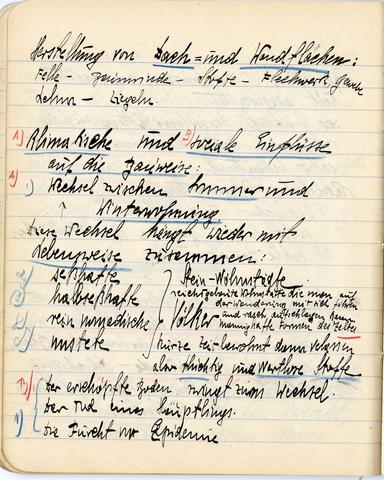 Herstellung von Dach= und Wandflächen:
Felle - Baumrinde - Stoffe - Flechtwerk, Gewebe
Lehm - Ziegeln.
1) Klimatische und 2) soziale Einflüsse
auf die Bauweise:
1) Wechsel zwischen Sommer und
Winterwohnung
Diese Wechsel hängt wieder mit
Lebensweise zusammen:
seßhafte
halbseßhafte
rein nomadische
unstete
Völker
Stein-Wohnstätte
die man auf
der Wanderung mit sich führen
und rasch aufschlagen kann
mannigfache Formen des Zeltes
kurze Zeit bewohnt dann verlassen
aber flüchtig und wertlose Stoffe
der erschöpfte Boden zwingt zum Wechsel.
der Tod eines Häuptlings.
die Furcht vor Epidemie